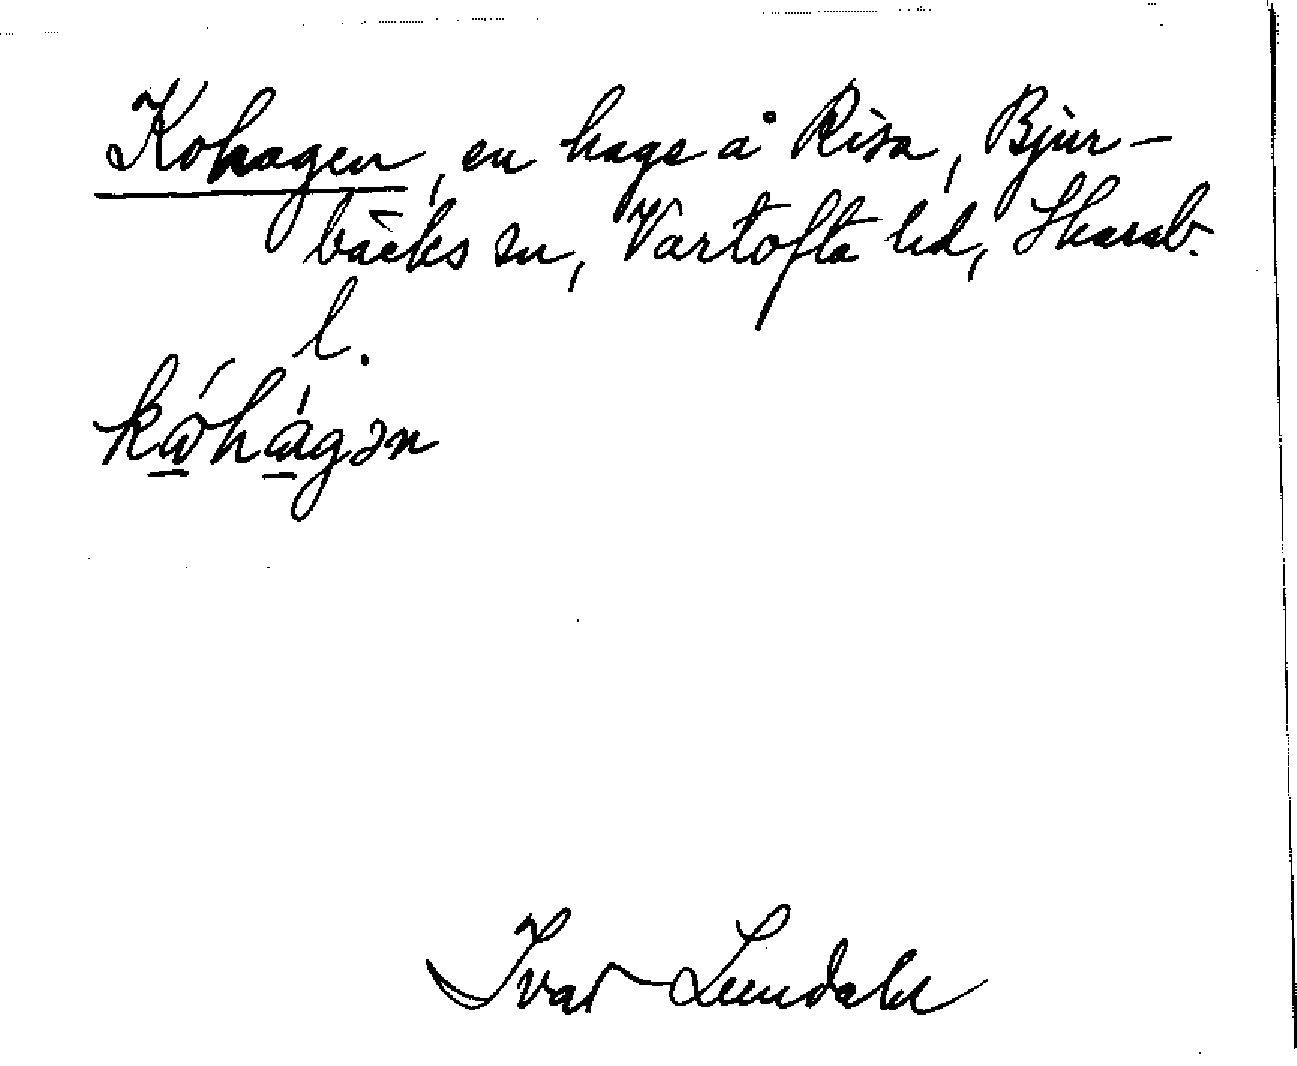 Kohagen, en hage å Risa, Bjur-
bäcks sn, Vartofta hd, Skarab.
l.
kⱥ́hágən
Ivar Lundahl